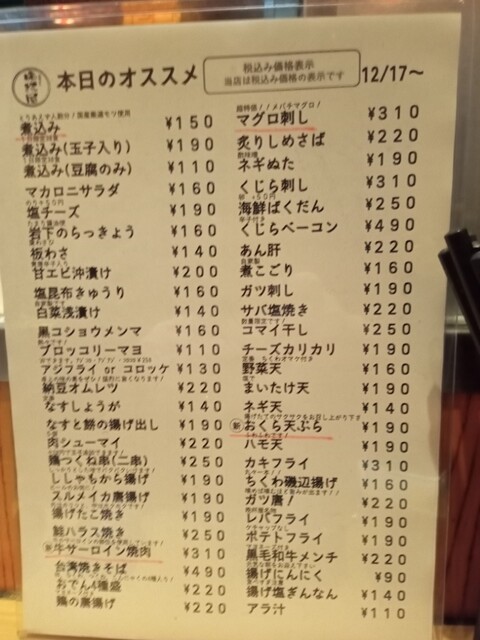 本日のオススメ
税込み価格表示
当店は税込み価格の表示です
12/17～
煮込み ¥150
煮込み(玉子入り) ¥190
煮込み(豆腐のみ) ¥110
マカロニサラダ ¥160
塩チーズ ¥190
岩下のらっきょう ¥160
板わさ ¥140
甘エビ沖漬け ¥200
塩昆布きゅうり ¥160
白菜浅漬け ¥140
黒コショウメンマ ¥160
ブロッコリーマヨ ¥110
アジフライ or コロッケ ¥130
納豆オムレツ ¥220
なすしょうが ¥140
なすと餅の揚げ出し ¥190
肉シューマイ ¥220
鶏つくね串(二串) ¥250
ししゃもから揚げ ¥190
スルメイカ唐揚げ ¥190
揚げたこ焼き ¥190
鮭ハラス焼き ¥250
新 牛サーロイン焼肉 ¥310
台湾焼きそば ¥490
おでん4種盛 ¥220
鶏の唐揚げ ¥220
超特価！！メバチマグロ！
マグロ刺し ¥310
炙りしめさば ¥220
ネギぬた ¥190
くじら刺し ¥310
海鮮ばくだん ¥250
くじらベーコン ¥490
あん肝 ¥220
煮こごり ¥160
ガツ刺し ¥190
サバ塩焼き ¥220
数量限定です！
コマイ干し ¥250
チーズカリカリ ¥190
野菜天 ¥160
まいたけ天 ¥190
ネギ天 ¥140
新 おくら天ぷら ¥190
ハモ天 ¥190
カキフライ ¥310
ちくわ磯辺揚げ ¥160
ガツ唐！ ¥220
レバフライ ¥190
ポテトフライ ¥190
黒毛和牛メンチ ¥220
揚げにんにく ¥90
揚げ塩ぎんなん ¥140
アラ汁 ¥110